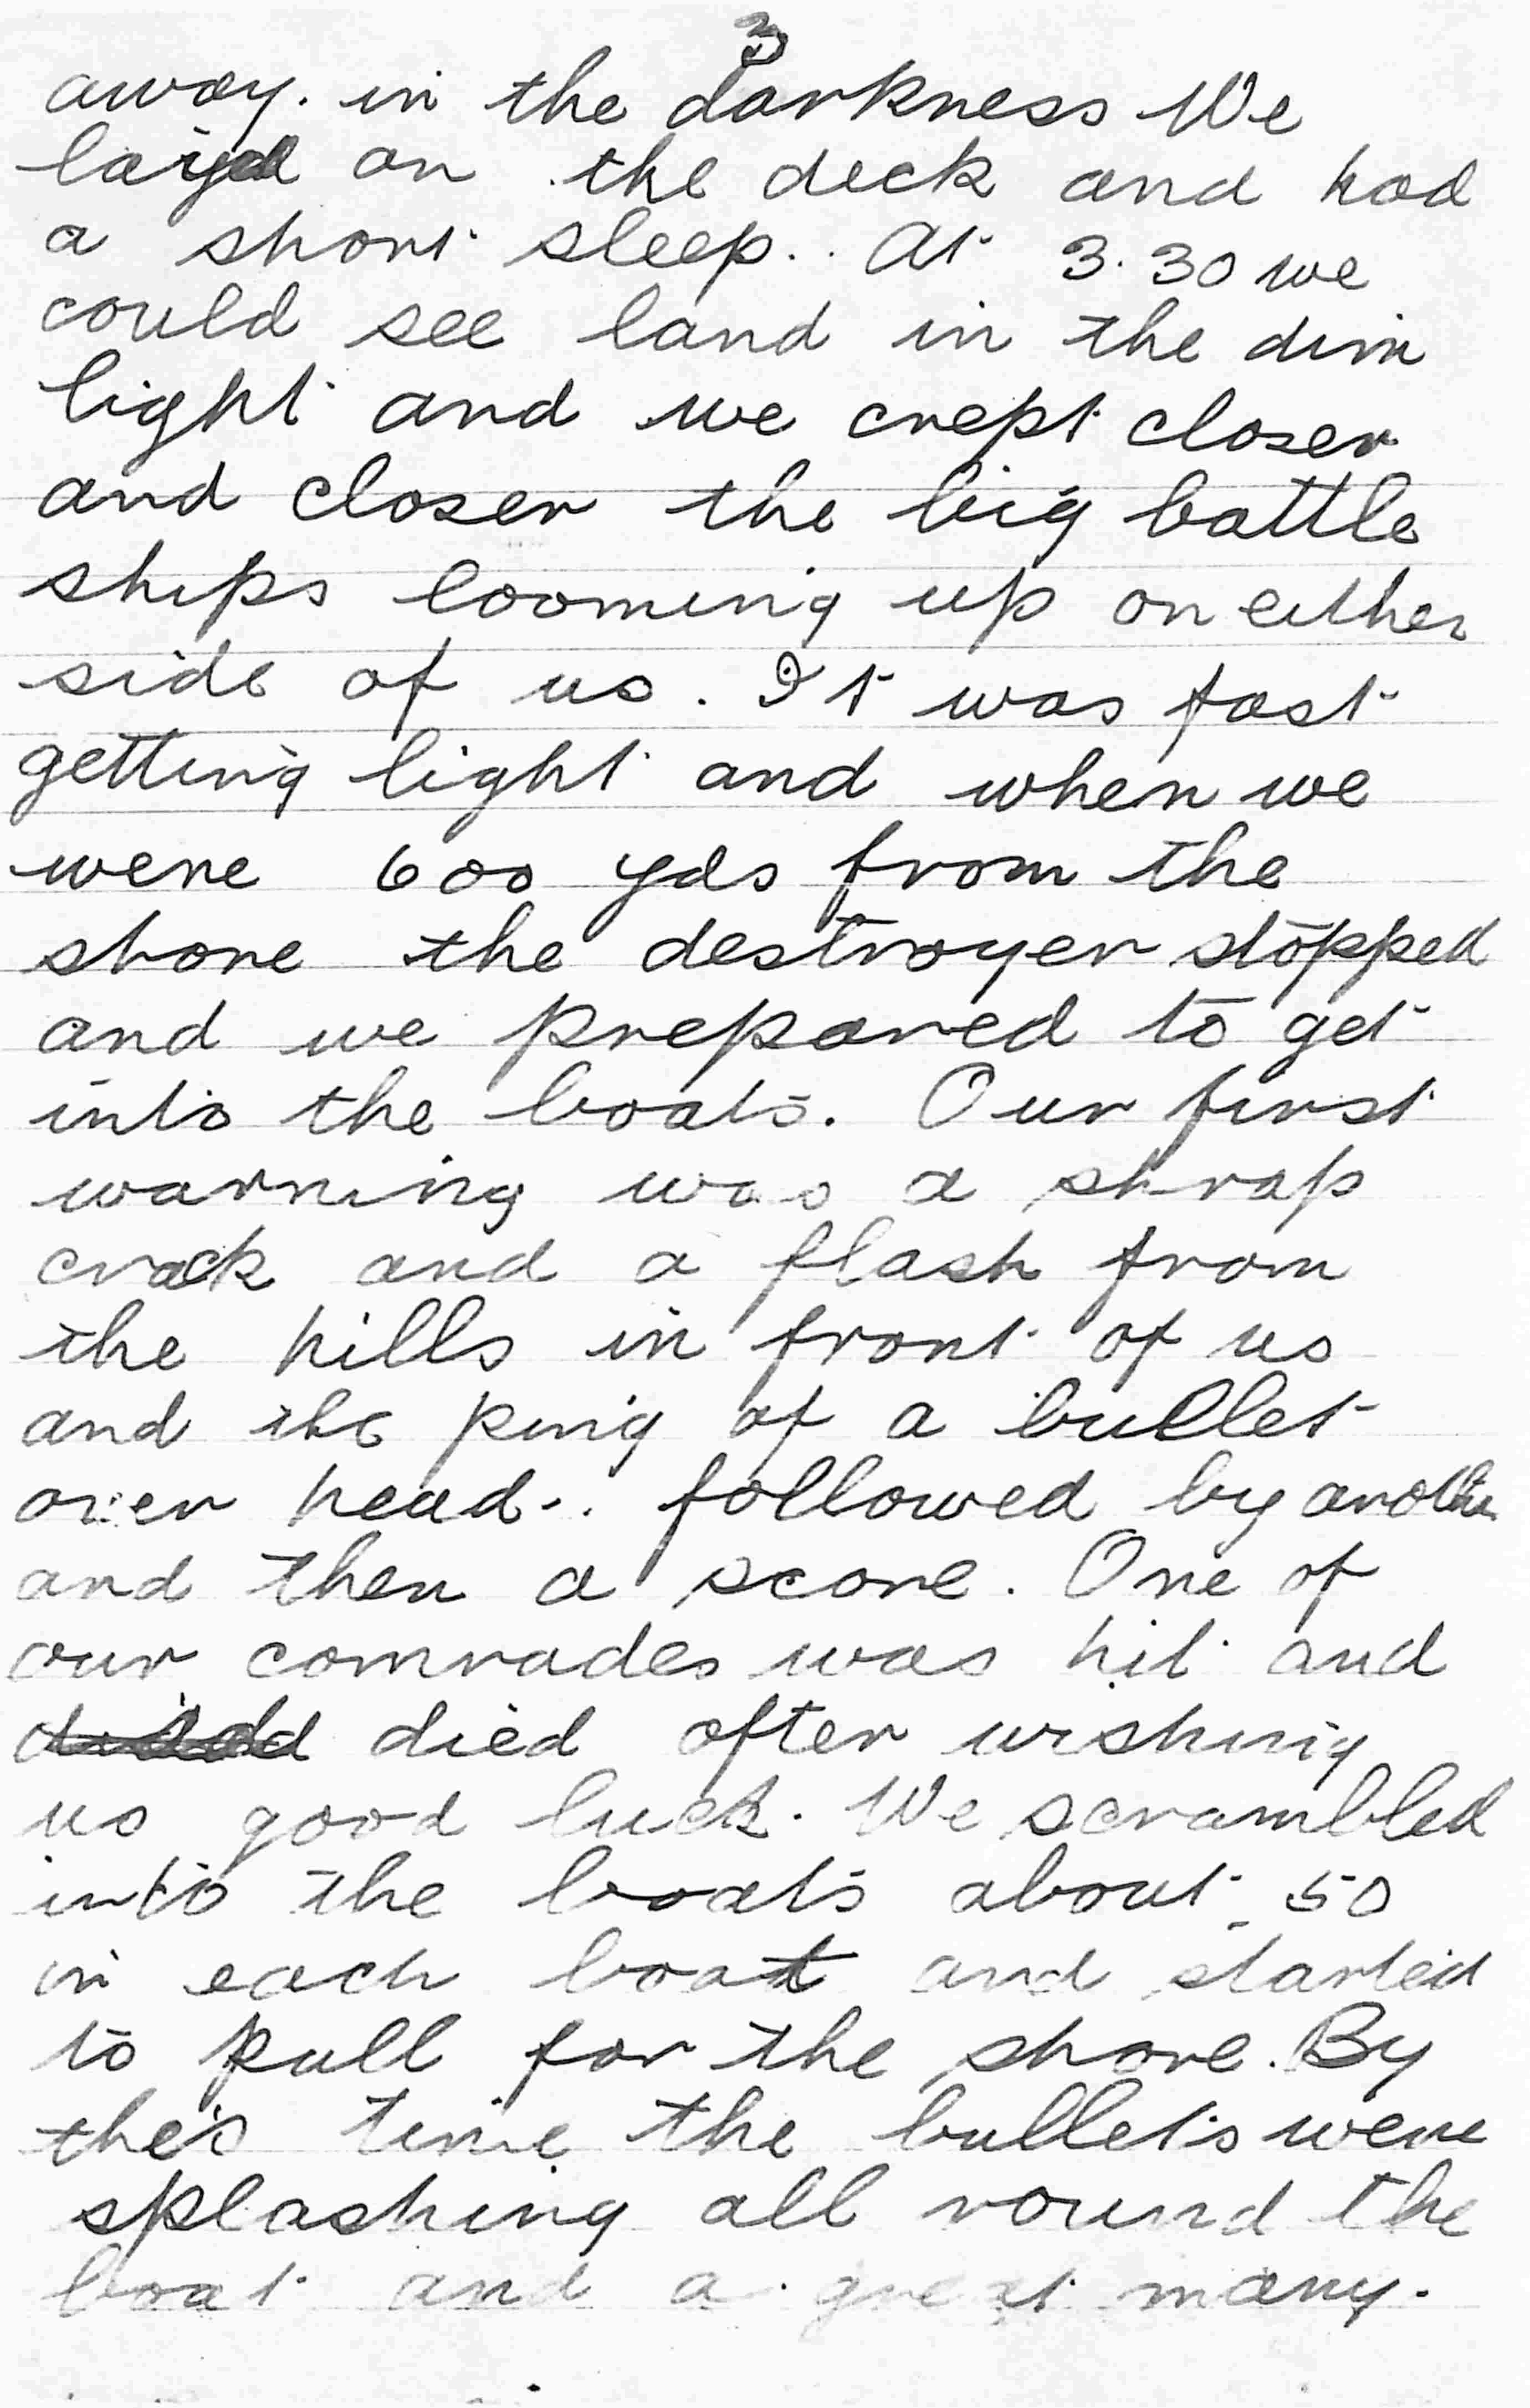 3
away. in the darkness We
layed on the deck and had
a short sleep. . At 3.30 we
could see land in the dim
light and we crept closer
and closer the big battle
ships looming up on either
side of us. It was fast
getting light and when we
were 600 yds from the
shore the destroyer stopped
and we prepared to get
into the boats. Our first
warning was a shrap
crack and a flash from
the hills in front of us
and the ping of a bullet
over head. . followed by another
and then a score. One of
our comrades was hit and
died after wishing
us good luck. We scrambled
into the boats about 50
in each boat and started
to pull for the shore. By
this time the bullets were
splashing all round the
boat and a great many.